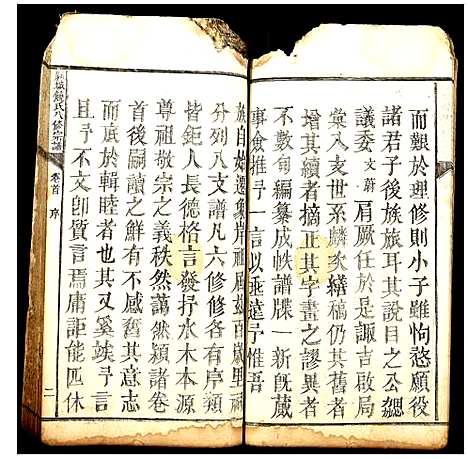 而艱於理修則小子雖怐愗願役
諸君子後族旅耳其説目之公勰
議委文蔚肩厥任於是諏吉啟局
彙入支世系麟次横稿仍其舊者
增其續者摘正其字畫之謬異者
不數旬編纂成帙譜牒一新旣蕆
事僉推予一言以垂遠予惟吾
族自始遷象岸祖居茲百歲里
分列八支譜凡六修修各有序類
皆鉅人長德格言發抒水木本源
尊祖敬宗之義秩然藹然潁諸卷
首後嗣讀之鮮有不感奮其意志
而底於輯睦者也其又奚竢予言
且予不文卽贅言焉庸詎能匹休
氏八修宗譜
卷首
序
二